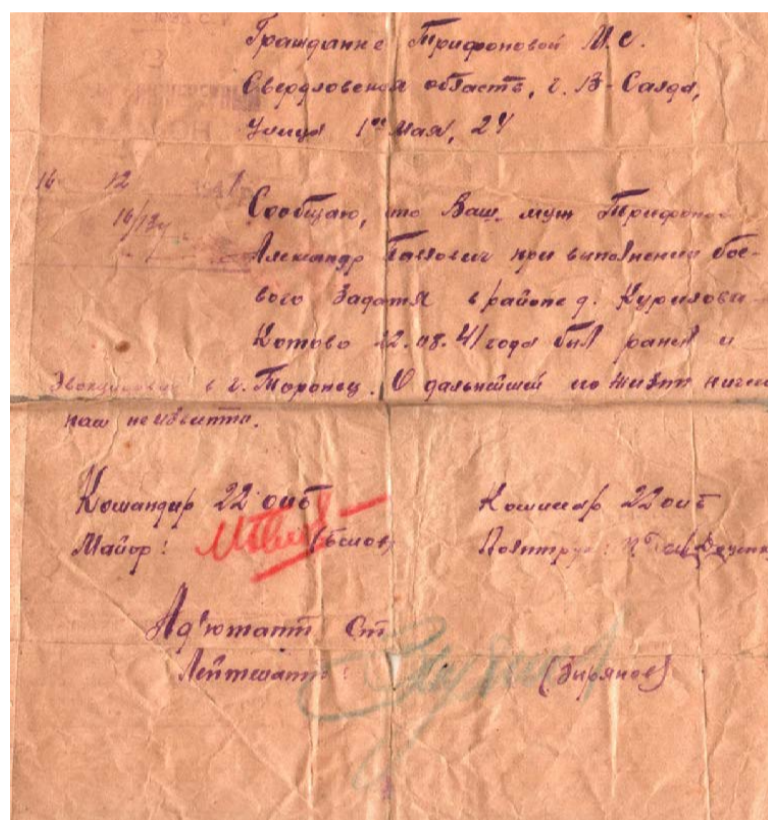 Гражданке Трифоновой М.С.
Свердловская область, г. В-Салда,
Улица 1ое Мая, 24
16 12
16/12
Сообщаю, что Ваш муж Трифонов
Александр Павлович при выполнении бое-
вого задатя в районе д. Курилови-
Котово 22.08.41 года был ранен и
Эвакуирован в г. Торопец. О дальнейшей его жизни ниче
нам неизвестно.
Командир 22 оиб
Майор:
Комиссар 22 оиб
Политрук:
Ад'ютант Ст.
Лейтенант: (Зырянов)